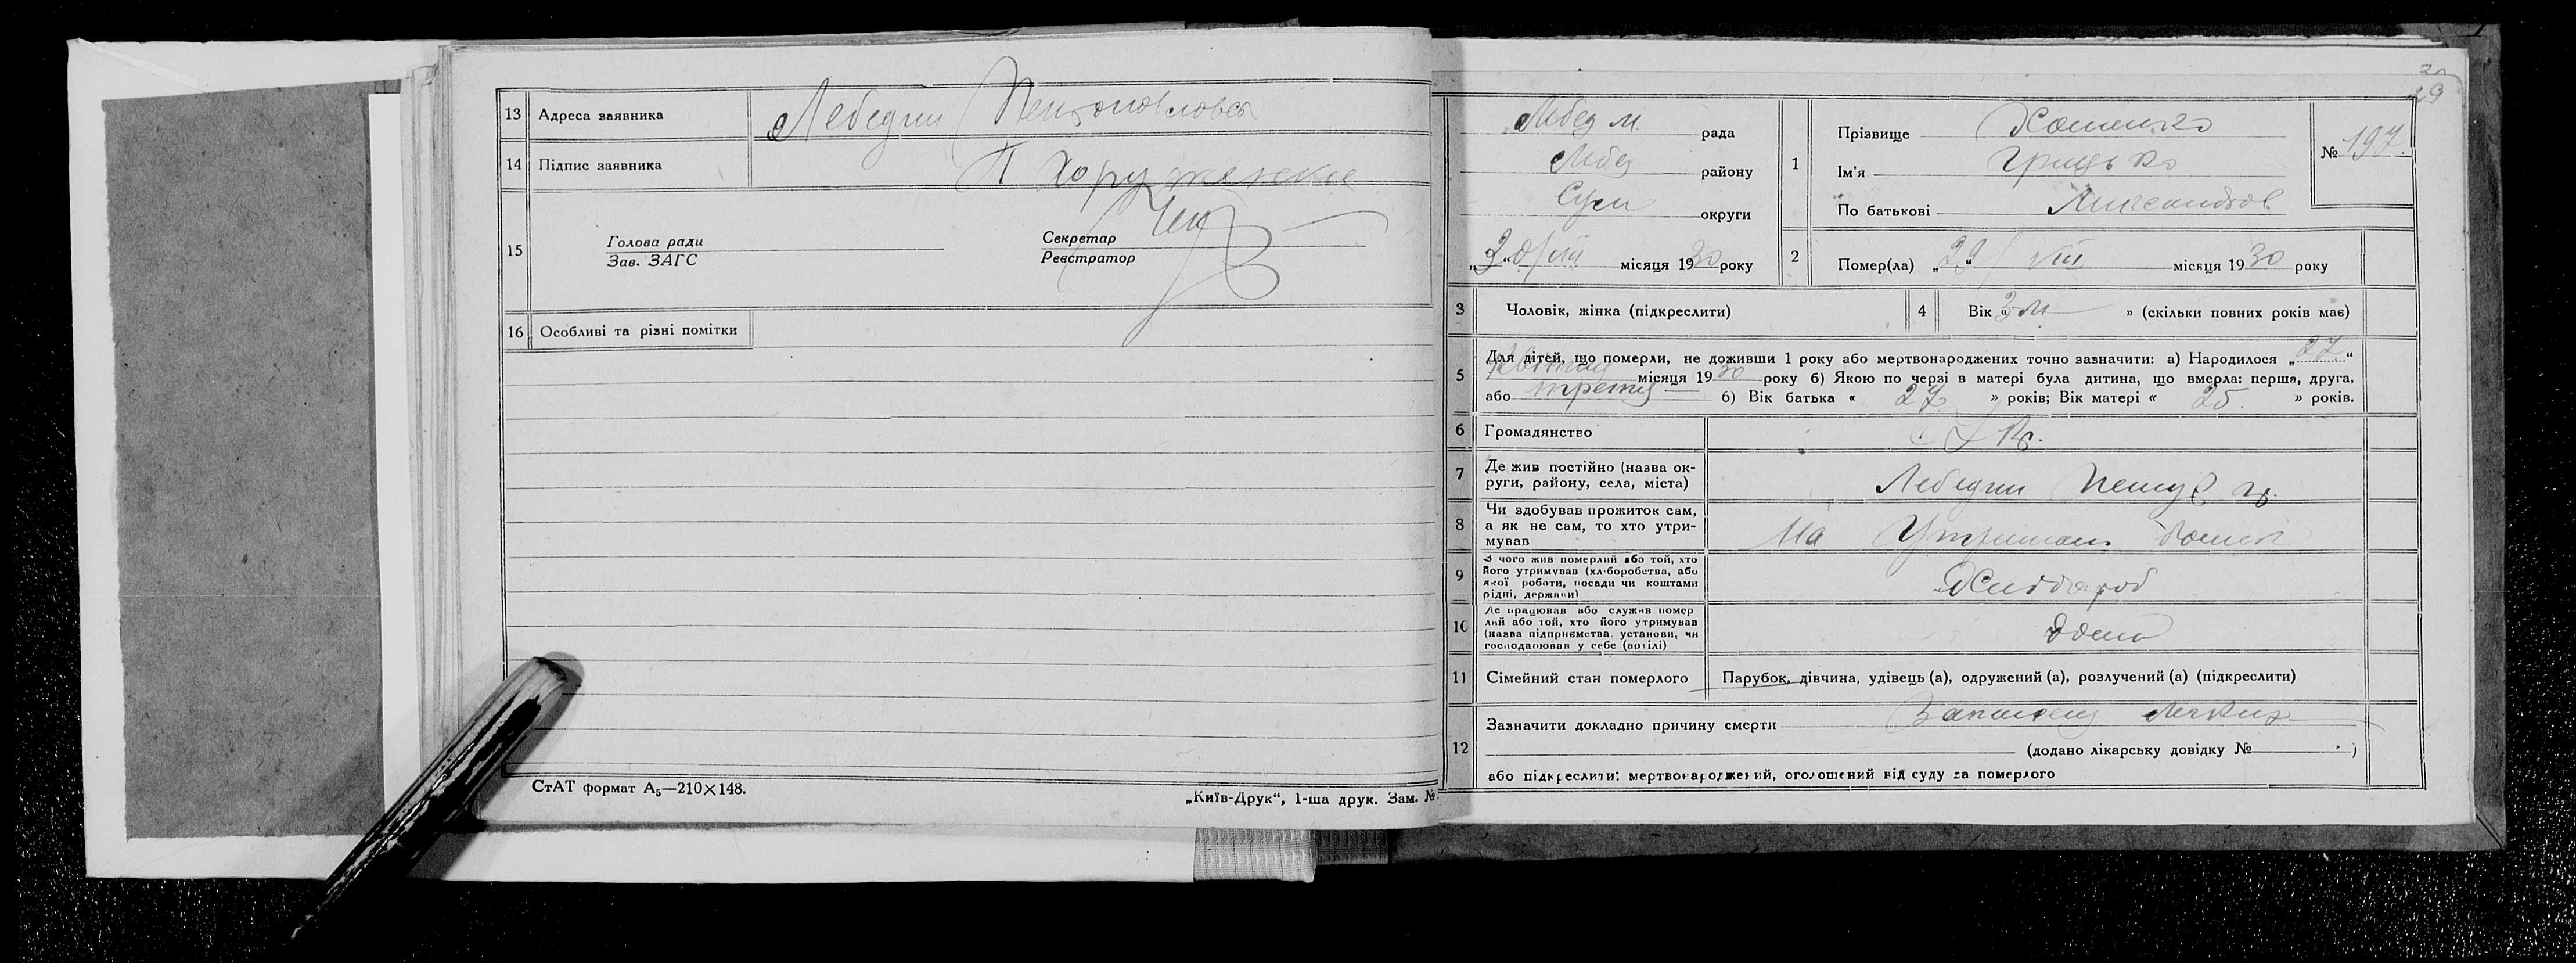 13 Адреса заявника Лебедин
14 Підпис заявника П
15 Голова ради
Зав. ЗАГС
Секретар
Реєстратор
16 Особливі та різні помітки
СтАТ формат А₅—210×148.
„Київ-Друк“, 1-ша друк. Зам. №
29
Лебед м. рада
Лебед району
Сум округи
місяця 1930 року
1 Прізвище Хоменко
Ім'я Грицько
По батькові
№ 197.
2 Помер(ла) „29“ VIII місяця 1930 року
3 Чоловік, жінка (підкреслити)
4 Вік « 3 м » (скільки повних років має)
5 Для дітей, що померли, не доживши 1 року або мертвонароджених точно зазначити: а) Народилося „27“
місяця 1930 року б) Якою по черзі в матері була дитина, що вмерла: перша, друга,
або третя б) Вік батька « 27 » років; Вік матері « 25. » років.
6 Громадянство
7 Де жив постійно (назва ок-
руги, району, села, міста) Лебедин
8 Чи здобував прожиток сам,
а як не сам, то хто утри-
мував На
9 З чого жив померлий або той, хто
його утримував (хліборобства, або
якої роботи, посади чи коштами
рідні, держави) Хлібороб
10 Де працював або служив помер
лий або той, хто його утримував
(назва підприємства, установи, чи
господарював у себе (артілі)
11 Сімейний стан померлого Парубок, дівчина, удівець (а), одружений (а), розлучений (а) (підкреслити)
12 Зазначити докладно причину смерти Легких
(додано лікарську довідку № )
або підкреслити: мертвонароджений, оголошений від суду за померлого